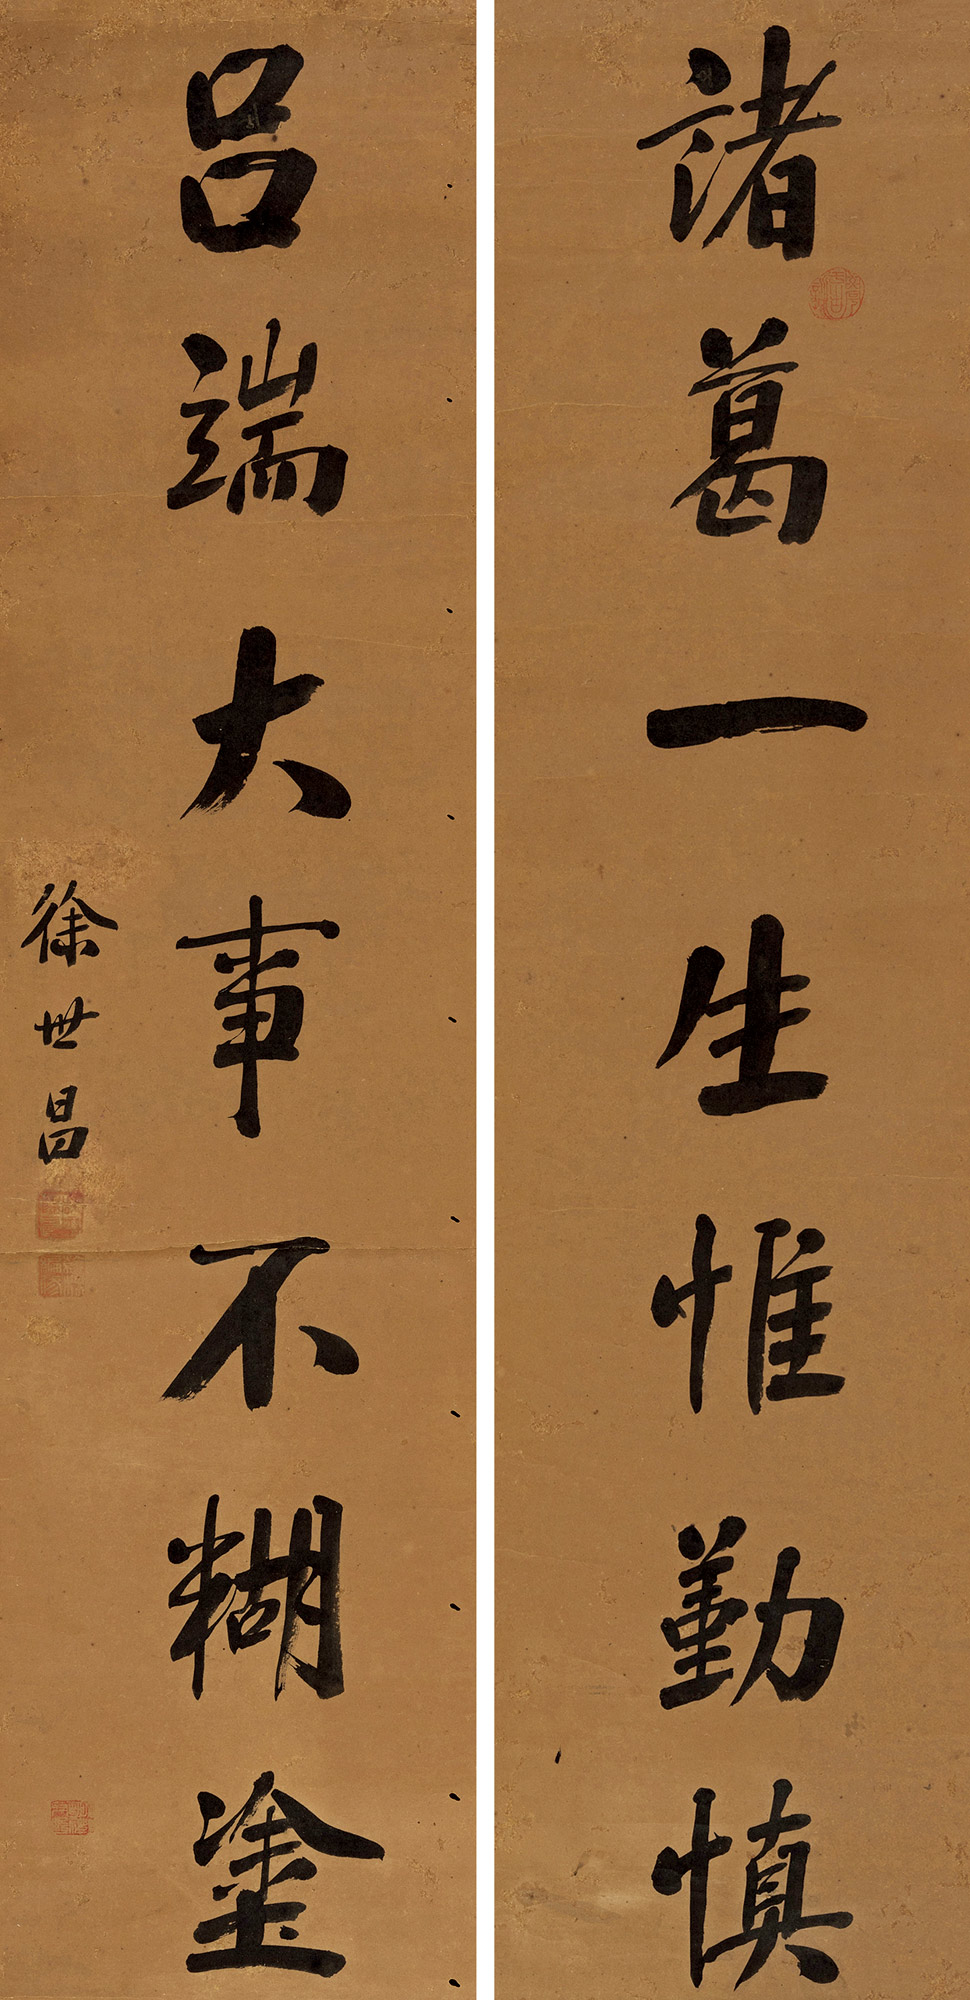 諸葛一生惟勤慎
吕端大事不糊塗
徐世昌